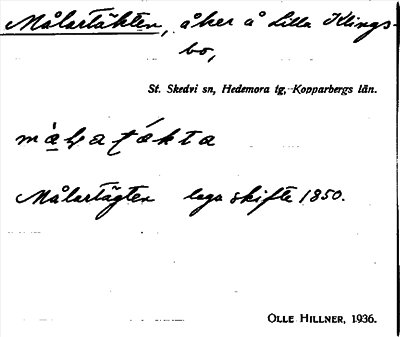 Målartäkten, åker å Lilla Klings-
bo,
St. Skedvi sn, Hedemora tg, Kopparbergs län.
Målartägten laga skifte 1850.
OLLE HILLNER, 1936.